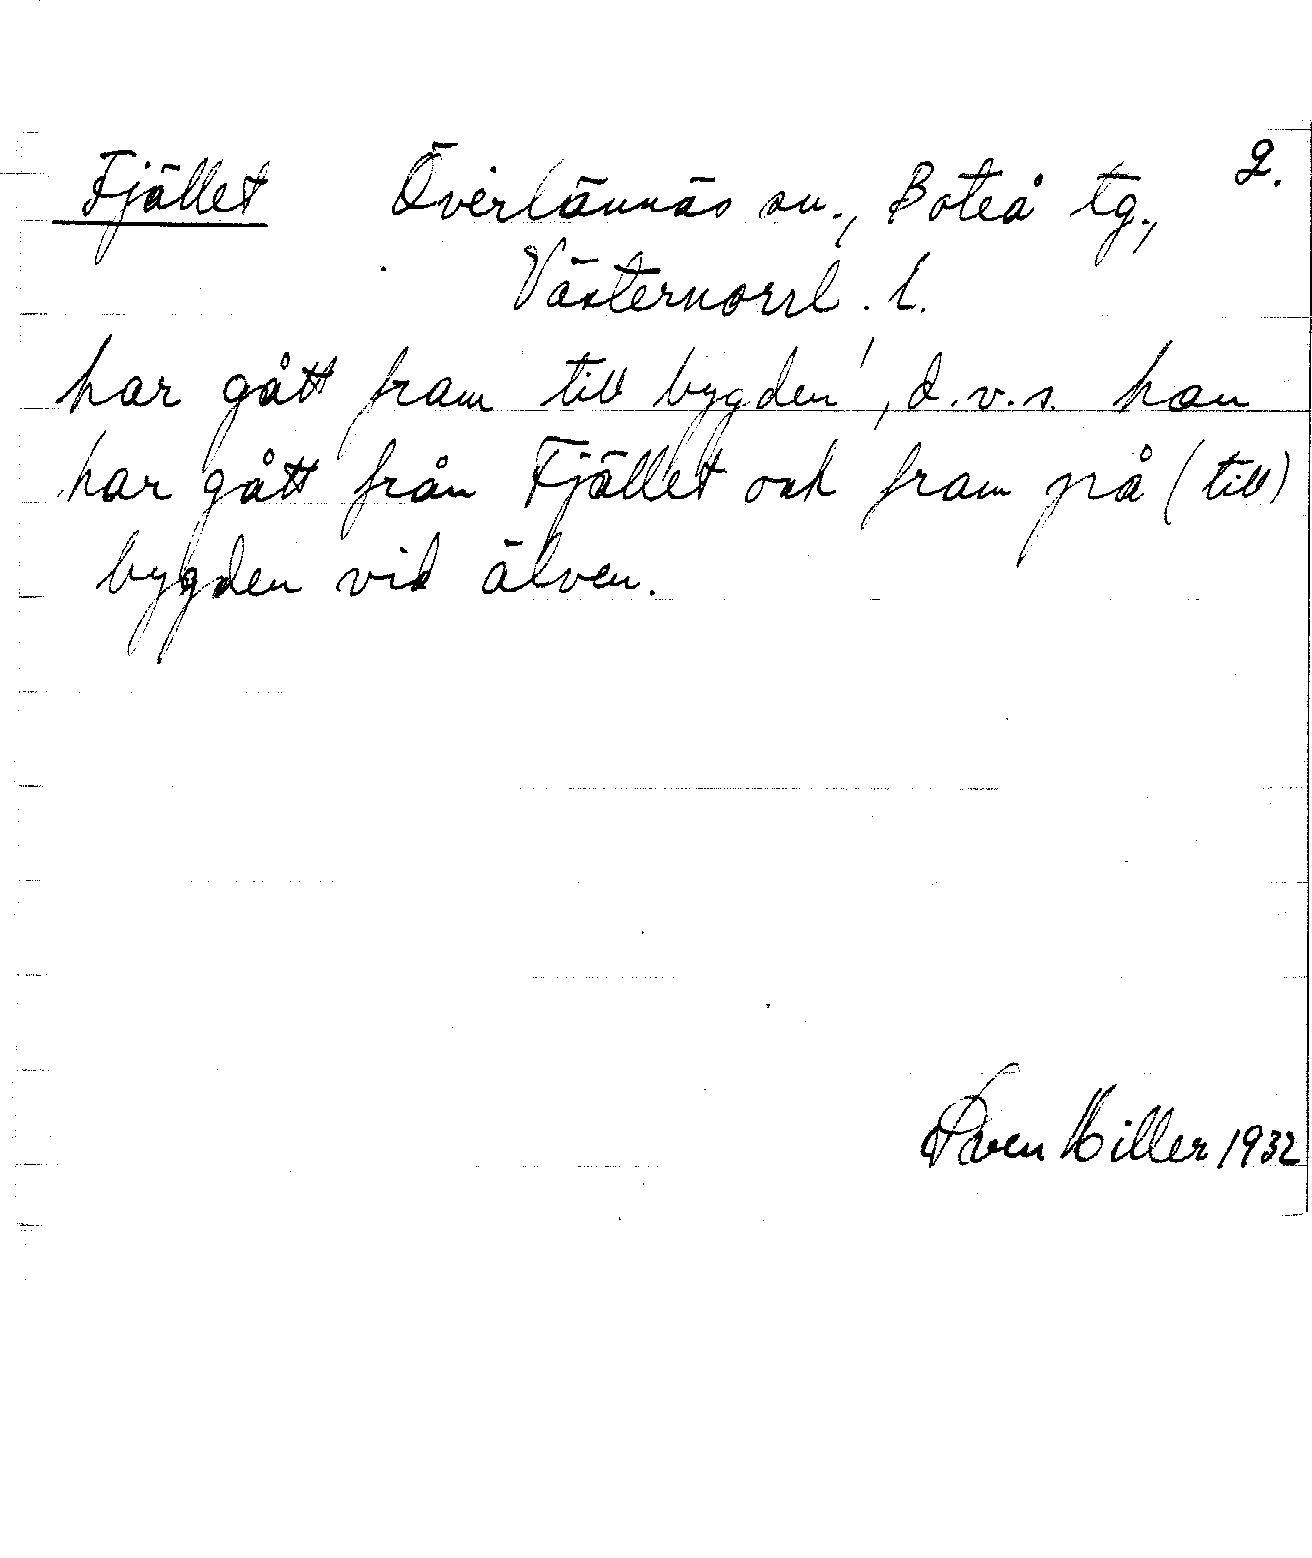 Fjället Överlännäs sn., Boteå tg., 2.
Västernorrl. l.
har gått fram till bygden', d.v.s. han
har gått från Fjället och fram på (till)
bygden vid älven.
Sven Hiller 1932